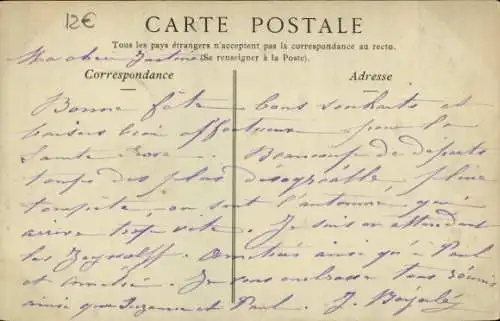 12€
CARTE POSTALE
Tous les pays étrangers n'acceptent pas la correspondance au recto.
(Se renseigner à la Poste).
Ma chère Justine
Correspondance
Adresse
Bonne fête bons souhaits et
baisers bien affectueux pour la
Sainte Rose. Beaucoup de départs
temps des plus désagréable, pluie
tempête, on sent l'automne qui
arrive trop vite. Je suis en attendant
les Amitiés ainsi qu'à Paul
et Je vous embrasse tous réunis
ainsi que Suzanne et Paul. J.